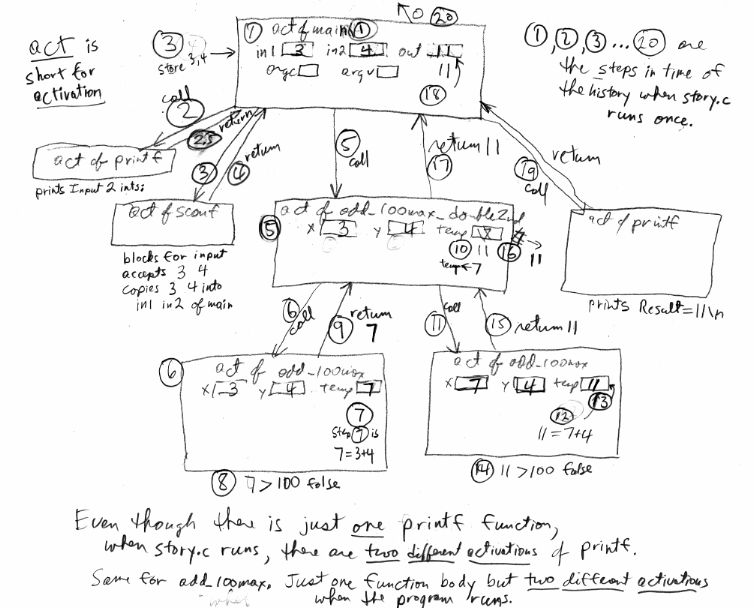 act is
short for
activation
③
store 3,4
① act of main ①
in1 3 in2 4 out 11
argc argv 11
⑱
⑳
①, ②, ③ ... ⑳ are
the steps in time of
the history when story.c
runs once.
call
②
2.5 return
act of printf
prints Input 2 ints:
③ ④ return
act of scanf
blocks for input
accepts 3 4
copies 3 4 into
in1 in2 of main
⑤
call
return 11
⑰
⑲
call
return
act of printf
prints Result=11\n
⑤ act of odd_100max_double2nd
x 3 y 4 temp 7
⑩ 11 ⑯ 11
temp 7
⑥
call
⑨ return
7
⑪ call
⑮ return 11
⑥ act of add_100max
x 3 y 4 temp 7
⑦
Step ⑦ is
7=3+4
⑧ 7 > 100 false
act of add_100max
x 7 y 4 temp 11
⑫ ⑬
11 = 7+4
⑭ 11 >100 false
Even though there is just one printf function,
when story.c runs, there are two different activations of printf.
Same for add_100max. Just one function body but two different activations
when the program runs.